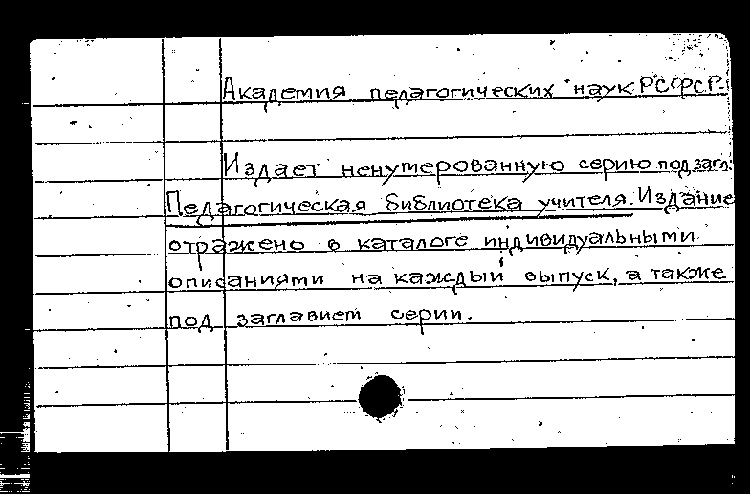 Академия педагогических наук РСФСР.
Издает ненумерованную серию под загл.
Педагогическая библиотека учителя. Издание
отражено в каталоге индивидуальными
описаниями на каждый выпуск, а также
под заглавием серии.